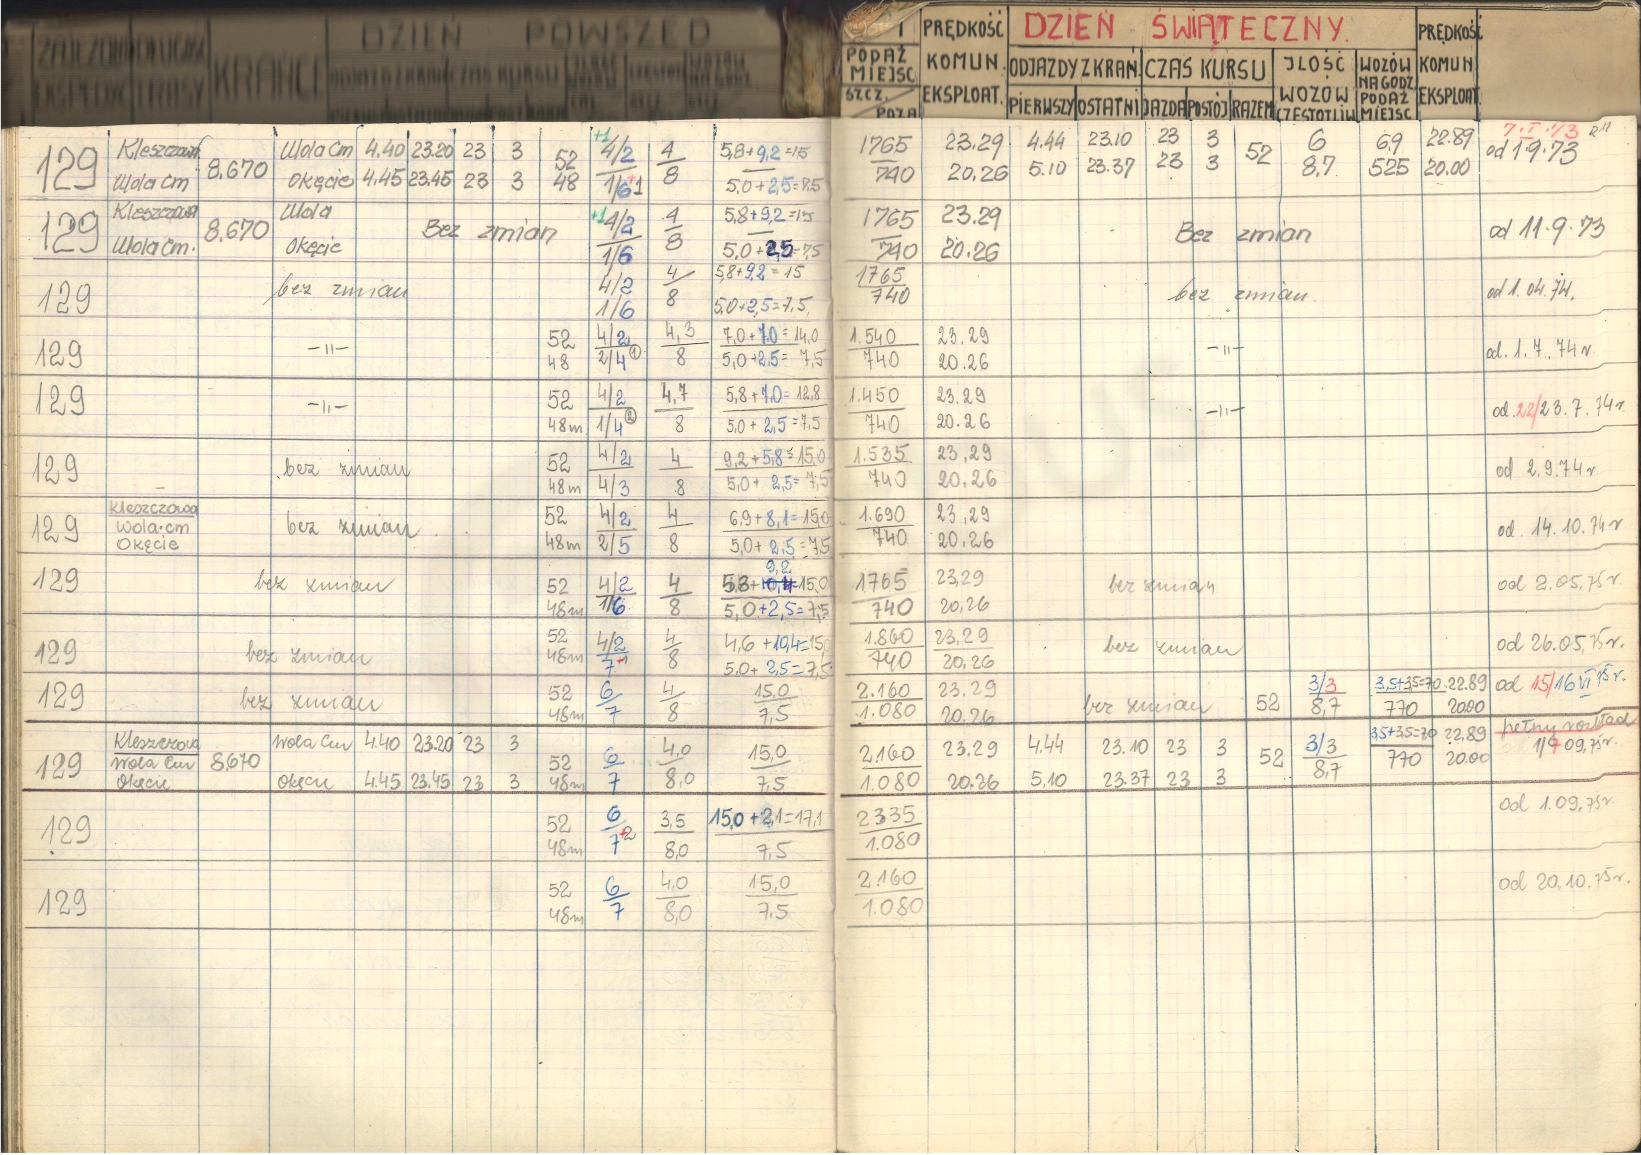 DZIEŃ POWSZED
KRAŃCE
PODAŻ MIEJSC
SZCZ.
POZA
PRĘDKOŚĆ KOMUN. EKSPLOAT.
DZIEŃ ŚWIĄTECZNY.
ODJAZDY Z KRAŃ. CZAS KURSU
PIERWSZY OSTATNI JAZDA POSTÓJ RAZEM
ILOŚĆ WOZÓW CZĘSTOTLIW
WOZÓW NA GODZ. PODAŻ MIEJSC
PRĘDKOŚĆ KOMUN EKSPLOAT.
129 Kleszczowa 8,670 Wola Cm 4.40 23.20 23 3 52 +1 4/2 4 5,8+9,2=15 1765 23.29 4.44 23.10 23 3 52 6 6,9 22.89 7.I.73
Wola Cm Okęcie 4.45 23.45 23 3 48 1/6+1 8 5,0+2,5=7,5 740 20.26 5.10 23.37 23 3 8,7 525 20.00 od 1.9.73
129 Kleszczowa 8,670 Wola Bez zmian +1 4/2 4 5,8+9,2=15 1765 23.29 Bez zmian od 11.9.73
Wola Cm. Okęcie 1/6 8 5,0+2,5=7,5 740 20.26
129 bez zmian 4/2 4 5,8+9,2=15 1765 bez zmian. od 1.04.74.
1/6 8 5,0+2,5=7,5 740
129 —"— 52 4/2 4,3 7,0+7,0=14,0 1.540 23.29 —"— od. 1.7.74r
48 2/4 ① 8 5,0+2,5=7,5 740 20.26
129 —"— 52 4/2 4,7 5,8+7,0=12,8 1.450 23.29 —"— od.22/23.7.74r.
48m 1/4 ② 8 5,0+2,5=7,5 740 20.26
129 bez zmian 52 4/2 4 9,2+5,8=15,0 1.535 23,29 od 2.9.74r
48m 4/3 8 5,0+2,5=7,5 740 20.26
129 Kleszczowa bez zmian 52 4/2 4 6,9+8,1=15,0 1.690 23,29 od. 14.10.74r
Wola.cm Okęcie 48m 2/5 8 5,0+2,5=7,5 740 20.26
129 bez zmian 52 4/2 4 5,8+9,2=15,0 1765 23,29 bez zmian od 2.05.75r
48m 1/6 8 5,0+2,5=7,5 740 20,26
129 bez zmian 52 4/2 4 4,6+10,4=15,0 1.860 23,29 bez zmian od 26.05.75r.
48m 7+1 8 5,0+2,5=7,5 740 20,26
129 bez zmian 52 6 4 15,0 2.160 23.29 bez zmian 52 3/3 3,5+3,5=7,0 22.89 od 15/16 VI 75r.
48m 7 8 7,5 1.080 20,26 8,7 770 20.00
129 Kleszczowa 8,670 Wola Cm 4.40 23.20 23 3 52 6 4,0 15,0 2.160 23.29 4.44 23.10 23 3 52 3/3 3,5+3,5=7,0 22,89 pełny rozkład
Wola Cm Okęcie Okęcie 4.45 23.45 23 3 48m 7 8,0 7,5 1.080 20,26 5,10 23.37 23 3 8,7 770 20.00
129 52 6 3,5 15,0+2,1=17,1 2335 od 1.09.75r
48m 7+2 8,0 7,5 1.080
129 52 6 4,0 15,0 2.160 od 20.10.75r.
48m 7 8,0 7,5 1.080